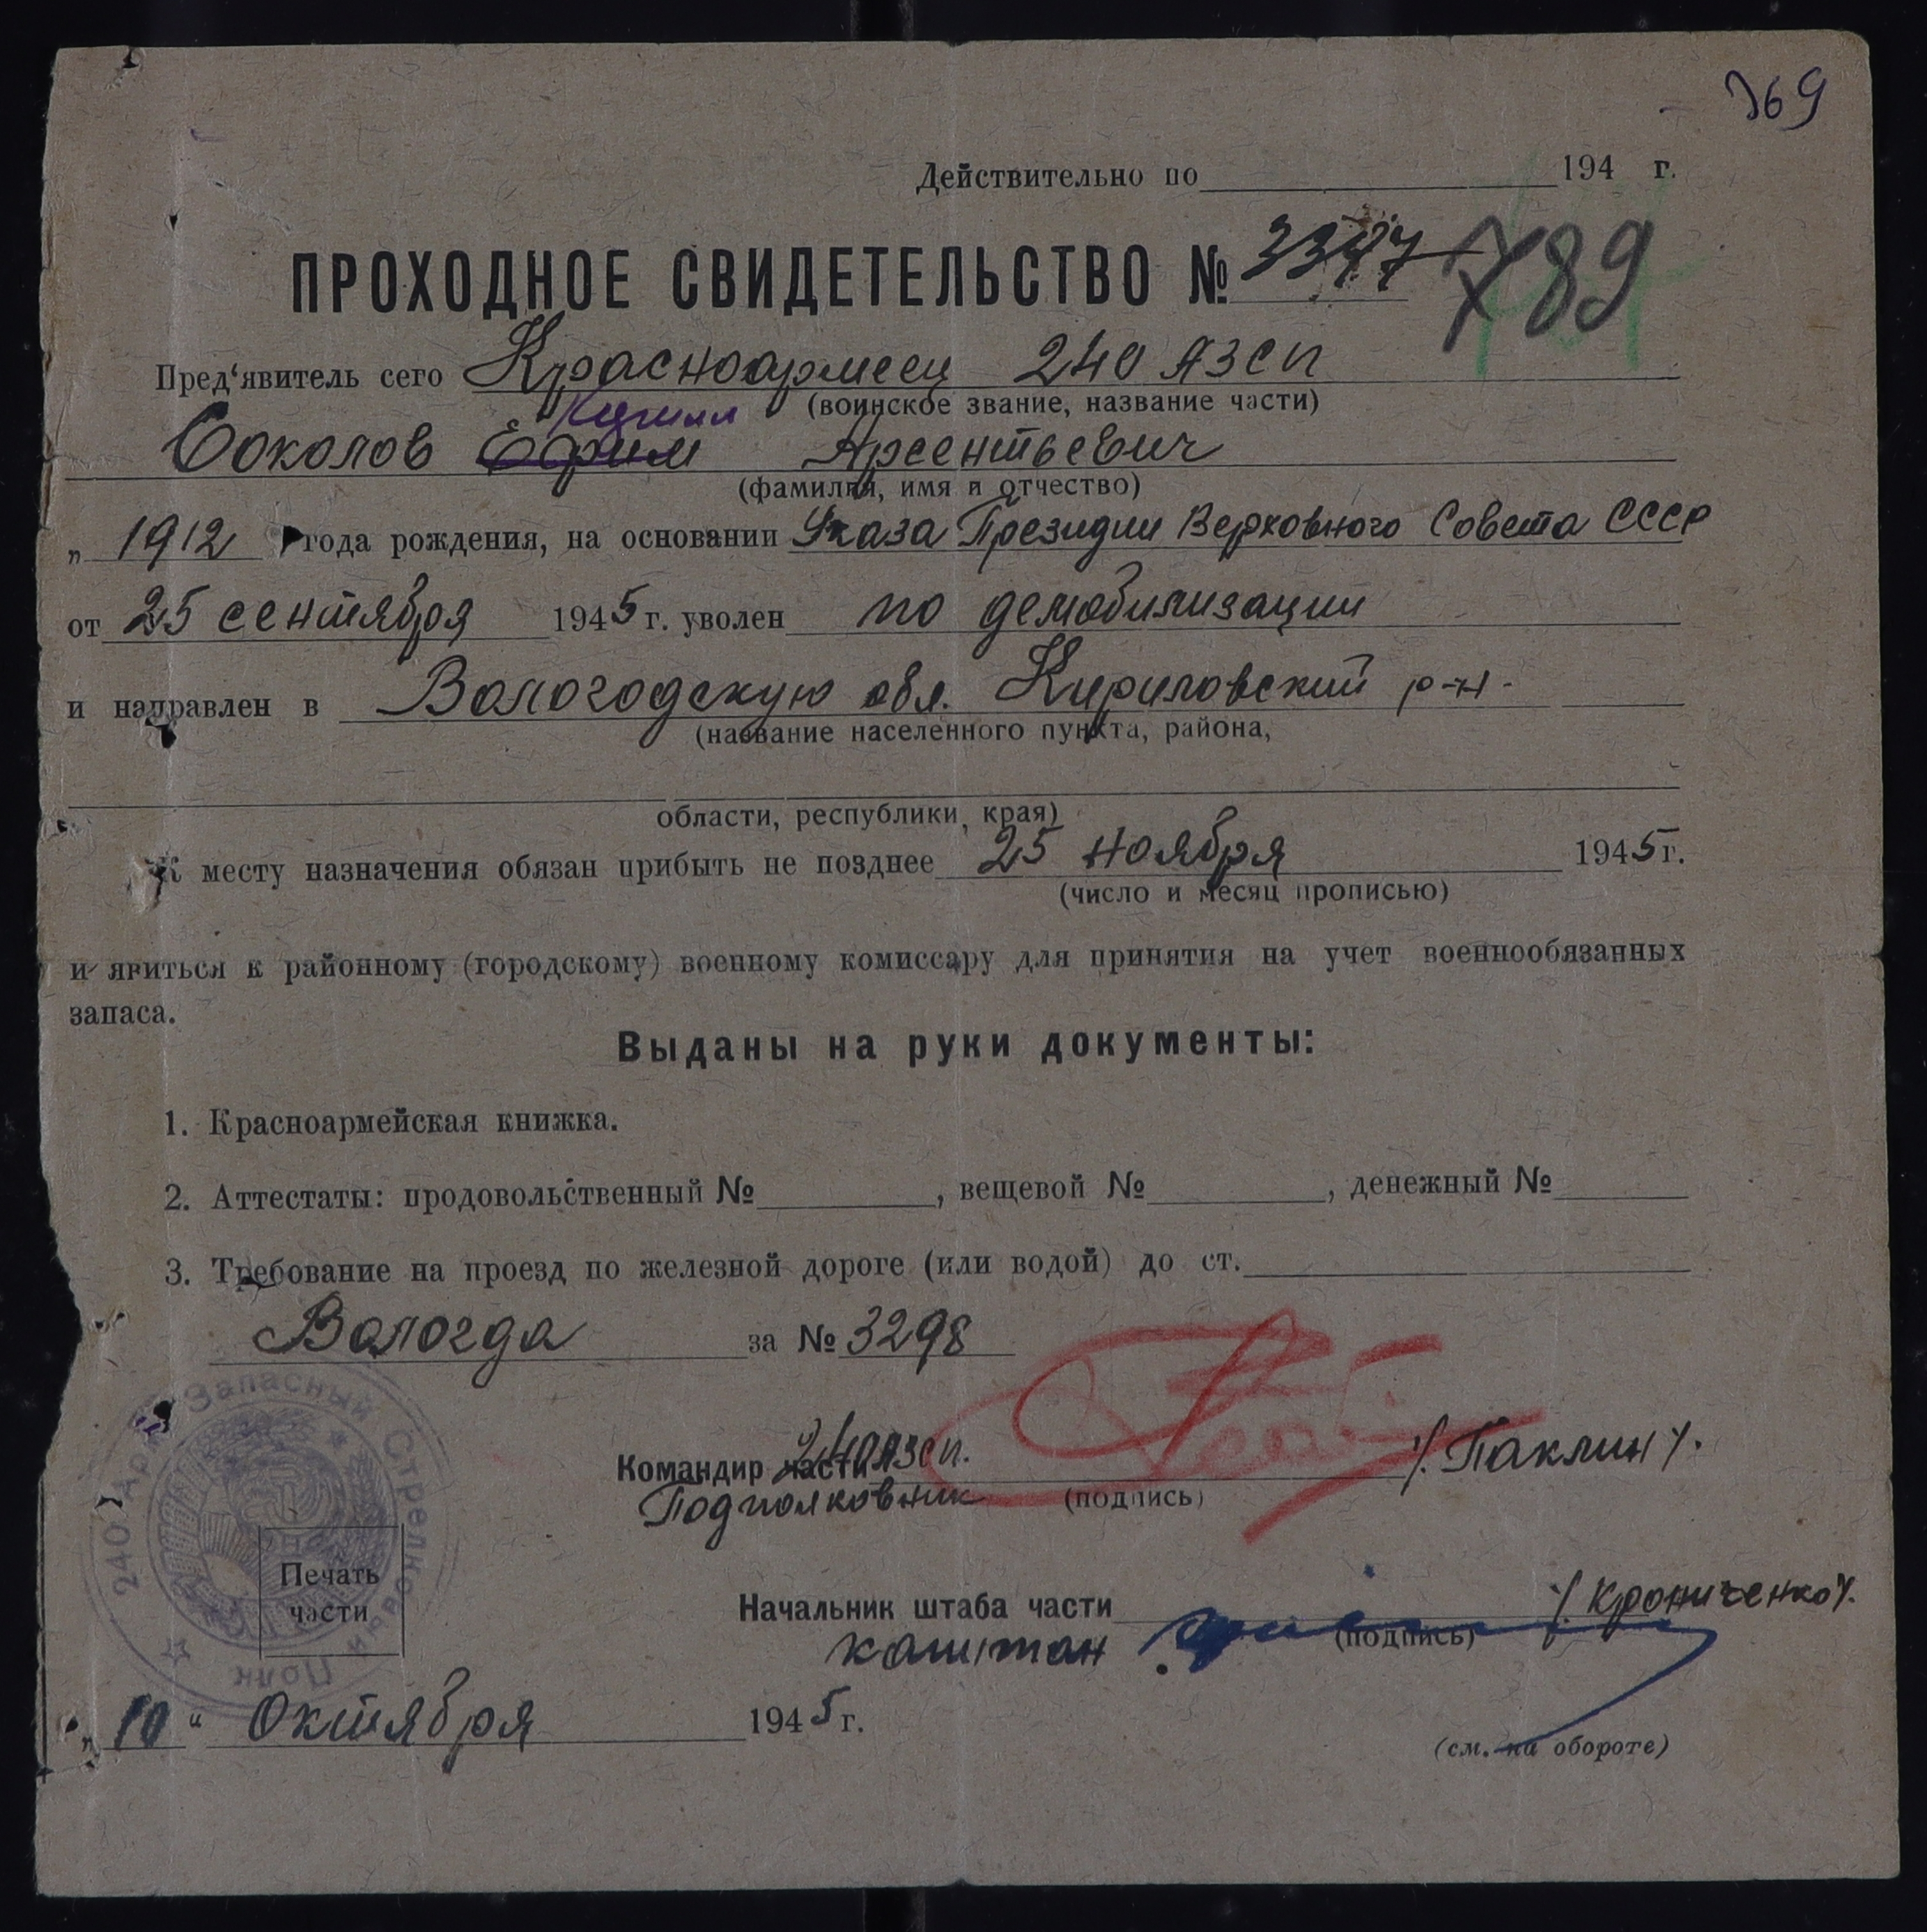 369
Действительно по 194 г.
ПРОХОДНОЕ СВИДЕТЕЛЬСТВО № 3347 789
Пред'явитель сего Красноармеец 240 АЗСП
(воинское звание, название части)
Кирилл
Соколов Ефим Арсентьевич
(фамилия, имя и отчество)
„ 1912 года рождения, на основании Указа Президии Верховного Совета СССР
от 25 сентября 1945 г. уволен по демобилизации
и направлен в Вологодскую обл. Кириловский р-н-
(название населенного пункта, района,
области, республики, края)
К месту назначения обязан прибыть не позднее 25 ноября 1945 г.
(число и месяц прописью)
и явиться к районному (городскому) военному комиссару для принятия на учет военнообязанных
запаса.
Выданы на руки документы:
1. Красноармейская книжка.
2. Аттестаты: продовольственный № , вещевой № , денежный №
3. Требование на проезд по железной дороге (или водой) до ст.
Вологда за № 3298
240 Арм Запасный Стрелковый Полк
Командир части 240 АЗСП. /Паклин/.
Подполковник (подпись)
Печать
части
Начальник штаба части /Крониченко/.
капитан (подпись)
„ 10 “ Октября 1945 г.
(см. на обороте)